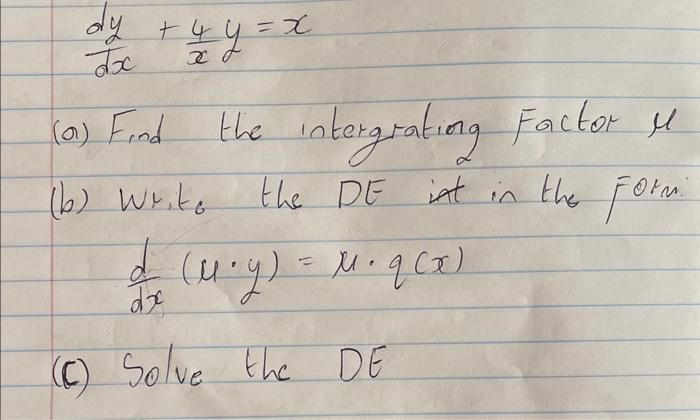 dy/dx + 4/x y = x
(a) Find the intergrating Factor μ
(b) Write the DE int in the Form:
d/dx (μ · y) = μ · q(x)
(C) Solve the DE